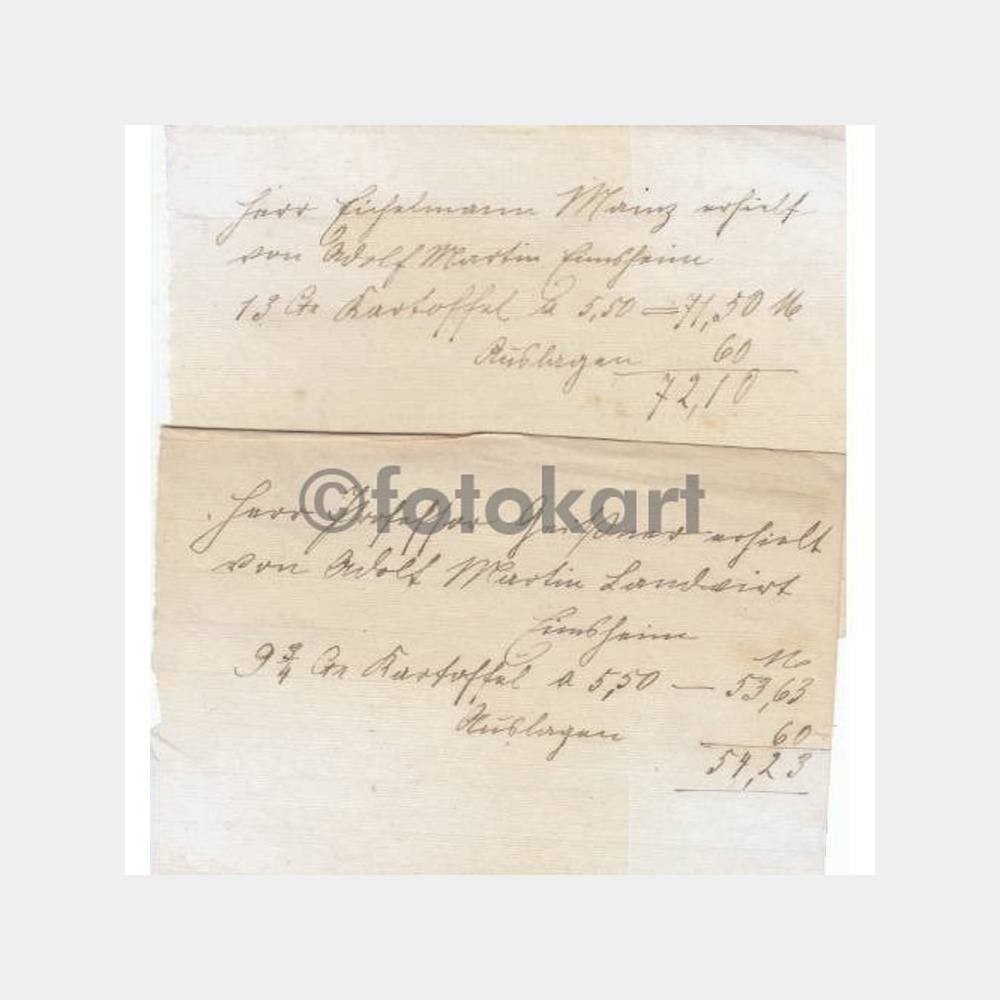 Herr Eichelmann Mainz erhielt
von Adolf Martin Eimsheim
13 Ctr Kartoffel a 5,50 = 71,50 M
Auslagen 60
72,10
©fotokart
Herr Professor erhielt
von Adolf Martin Landwirt
Eimsheim
M
9 3/4 Ctr Kartoffel a 5,50 — 53,63
Auslagen 60
54,23